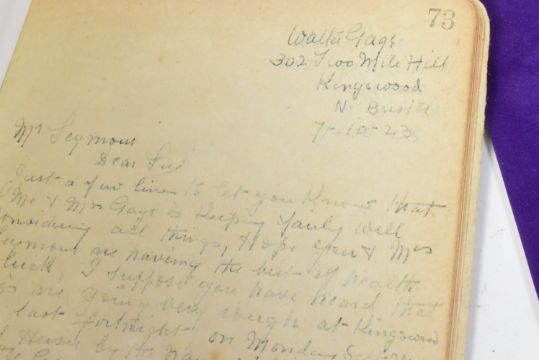 73
Walta Gage
302 Two Mile Hill
Kingswood
Nr Bristol
7. 10. 23
Mr Seymour
Dear Sir
Just a few lines to let you Know that
Me & Mrs Gage is Keeping fairly well
Considering all things, Hope you & Mrs
Seymour are having the best of health
& luck, I suppose you have heard that
are going very rough at Kingswood
last fortnight on Monday
House by the Name